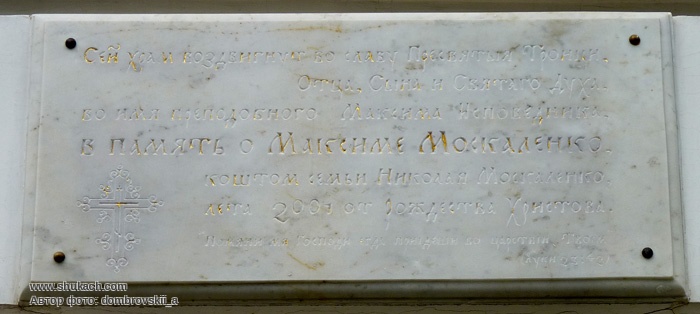 Сей храм воздвигнут во славу Пресвятыя Троицы,
Отца, Сына и Святаго Духа,
во имя преподобного Максима Исповедника.
В память о Максиме Москаленко.
коштом семьи Николая Москаленко.
лета 2001 от Рождества Христова.
во царствии
www.shukach.com
Автор фото: dombrovskii_a